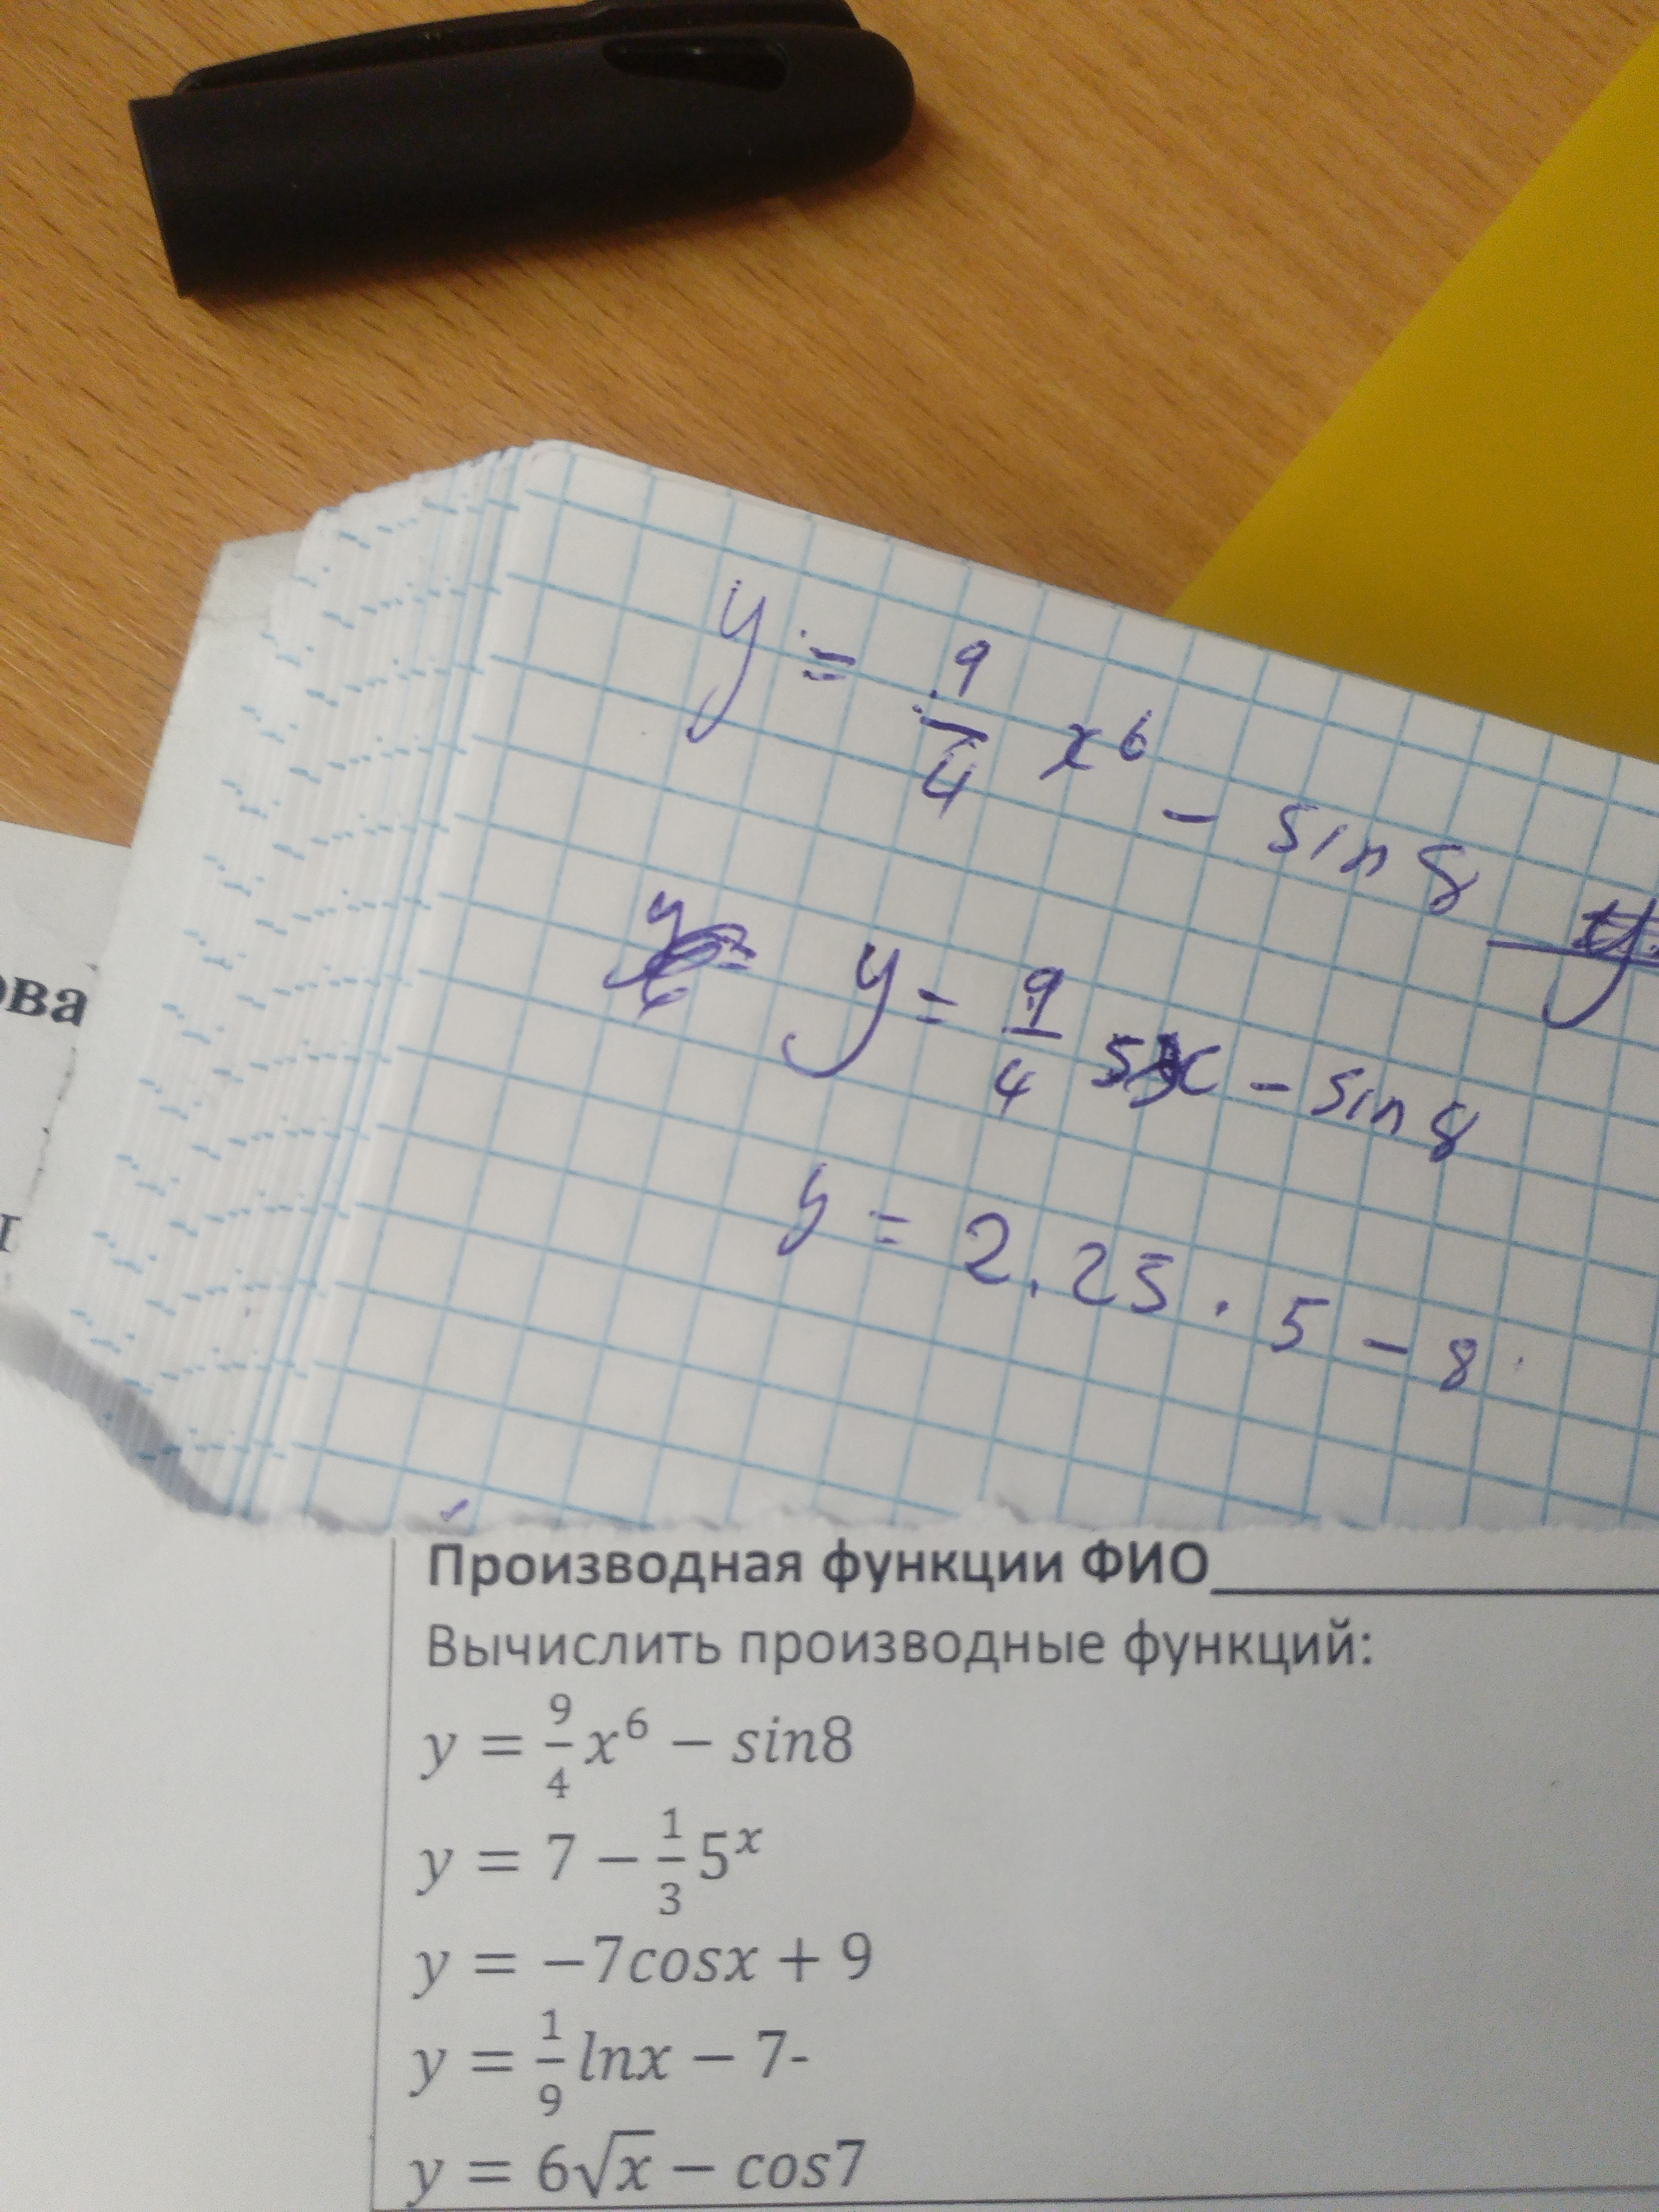 y = 9/4 x⁶ - sin 8
y = 9/4 5x - sin 8
y = 2.25 · 5 - 8
ова
Производная функции ФИО
Вычислить производные функций:
y = 9/4 x⁶ − sin8
y = 7 − 1/3 5ˣ
y = −7cosx + 9
y = 1/9 lnx − 7-
y = 6√x − cos7